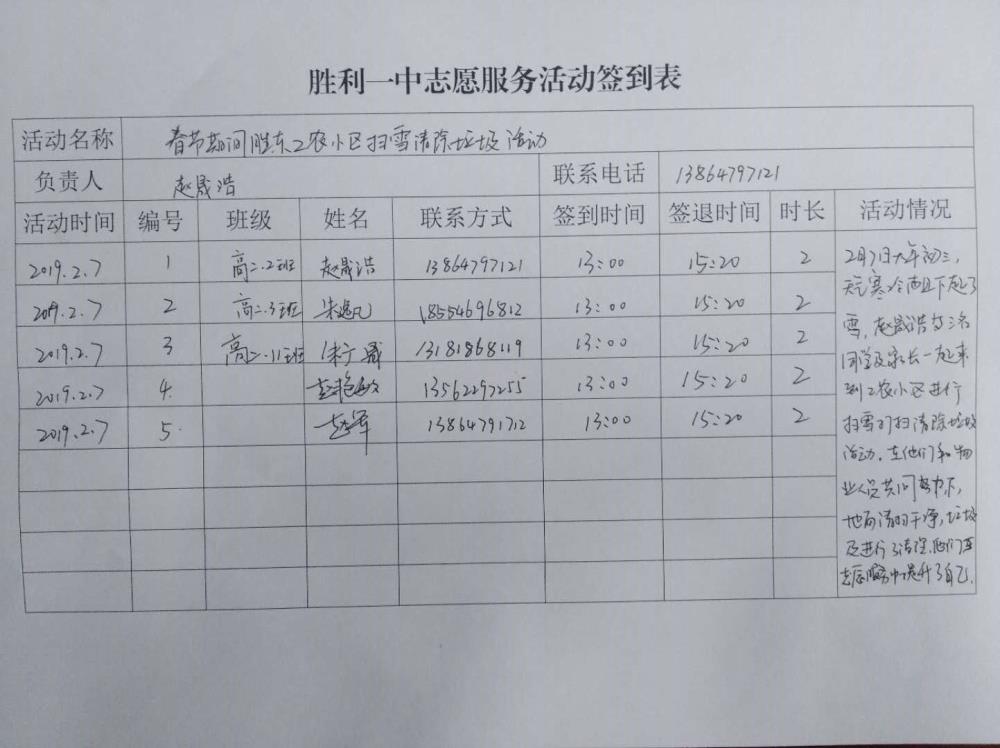 胜利一中志愿服务活动签到表
活动名称 春节期间胜东工农小区扫雪清除垃圾活动
负责人 赵晟浩 联系电话 13864797121
活动时间 编号 班级 姓名 联系方式 签到时间 签退时间 时长 活动情况
2019.2.7 1 高二.2班 赵晟浩 13864797121 13:00 15:20 2
2019.2.7 2 高二.3班 朱逸凡 18554696812 13:00 15:20 2
2019.2.7 3 高二.11班 广晟 13181868119 13:00 15:20 2
2019.2.7 4. 赵艳敏 13562297255 13:00 15:20 2
2019.2.7 5. 赵军 13864791712 13:00 15:20 2
2月7日大年初三,
天气寒冷而且下起了
雪,赵晟浩与三名
同学及家长一起来
到工农小区进行
扫雪打扫清除垃圾
活动.在他们和物
业人员共同努力下,
地面清扫干净,垃圾
及进行了清理.他们在
志愿服务中提升了自己.